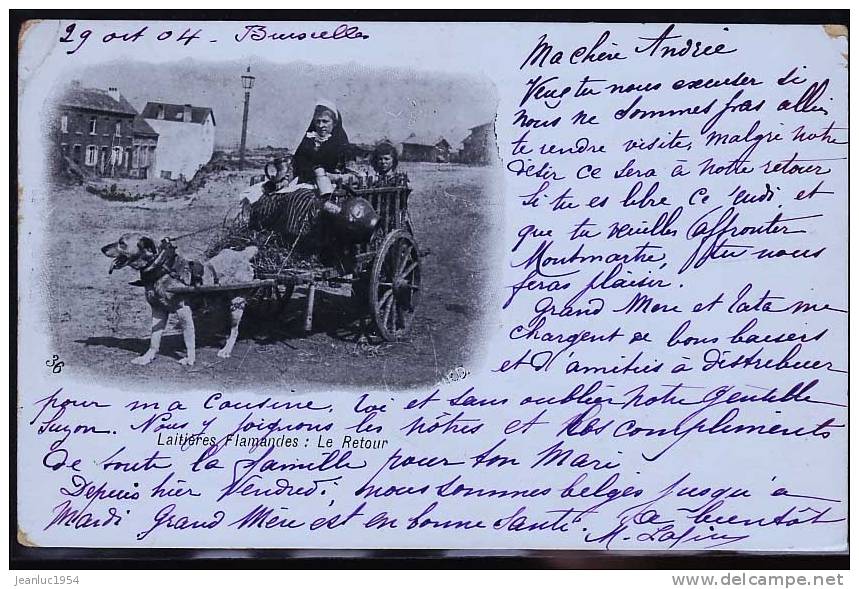 29 oct 04 - Bruxelles
Ma chère Andrée
Veux tu nous excuser si
nous ne sommes pas allés
te rendre visite, malgré notre
désir ce sera à notre retour
Si tu es libre ce jeudi et
que tu veuilles affronter
Montmartre, tu nous
feras plaisir.
Grand Mère et Tata me
chargent de bons baisers
et d'amitiés à distribuer
pour ma cousine, toi et sans oublier notre gentille
Suzon. Nous y joignons les nôtres et nos compliments
Laitières Flamandes : Le Retour
de toute la famille pour ton Mari
Depuis hier Vendredi nous sommes belges jusqu'à
Mardi Grand Mère est en bonne Santé. A bientôt
M.
36
jeanluc1954
http://www.delcampe.net